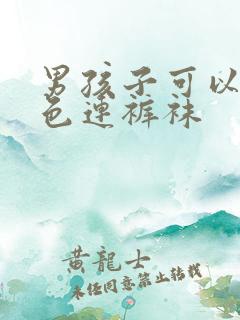 男孩子可以
色连裤袜
黄龍士
未任同意禁止转载